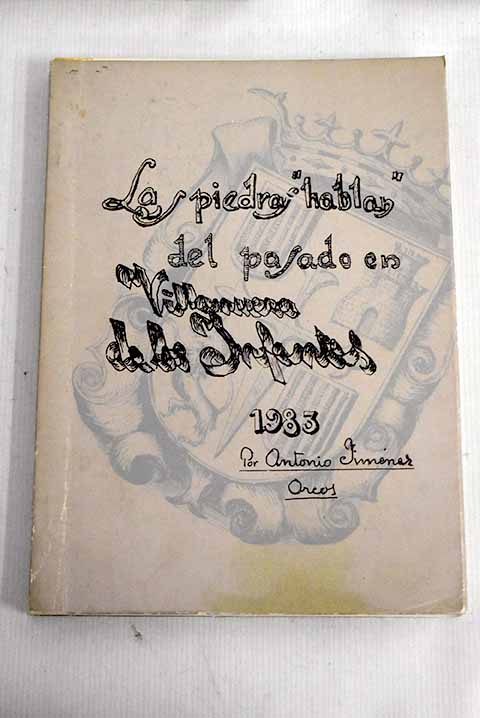 La piedra "habla"
del pasado en
Villanueva
de los Infantes
1983
Por Antonio Jiménez
Arcos